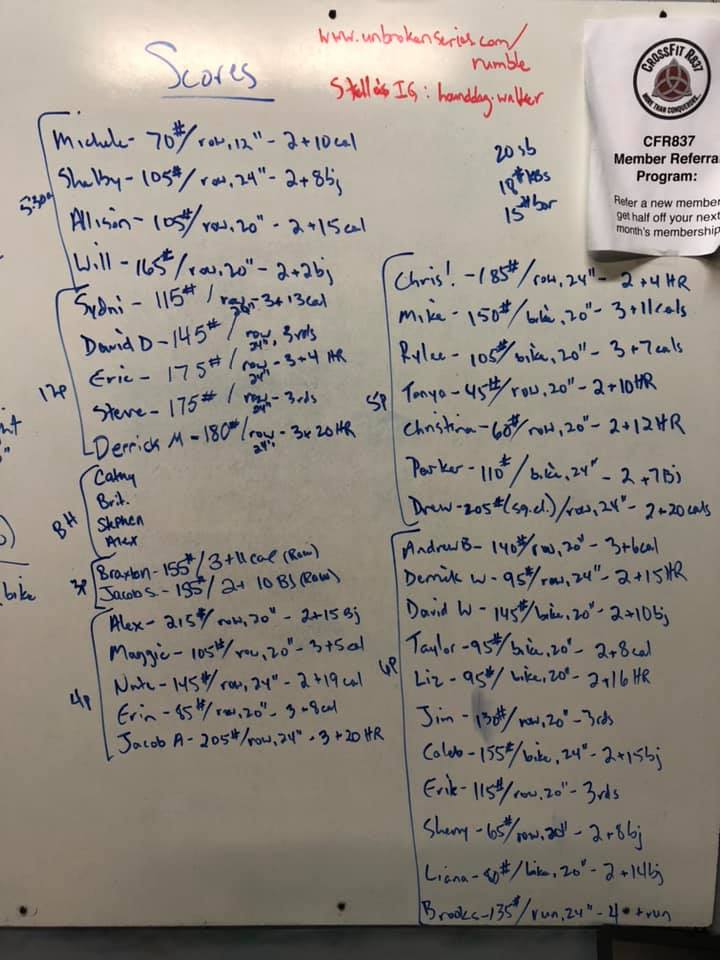 www.unbrokenseries.com/
rumble
Stella's IG: hounddog.walker
Scores
CROSSFIT R837
MORE THAN CONQUERORS
CFR837
Member Referral
Program:
Refer a new member
get half off your next
month's membership
20 sb
18# KBs
15# bar
5:30a
Michele - 70#/row, 12" - 2+10cal
Shelby - 105#/row, 24" - 2+8bj
Allison - 105#/row, 20" - 2+15cal
Will - 165#/row, 20" - 2+2bj
12p
Sydni - 115#/row 20" - 3+13cal
David D - 145#/row 24", 3rds
Eric - 175#/row 24" - 3+4 HR
Steve - 175#/row 24" - 3rds
Derrick M - 180#/row 24" - 3x20 HR
BH
Cathy
Brit.
Stephen
Alex
3p
Braxton - 155#/3+11cal (Row)
Jacob S - 155/2+ 10 BJ (Row)
4p
Alex - 215#/row, 20" - 2+15Bj
Maggie - 105#/row, 20" - 3+5cal
Nate - 145#/row, 24" - 2+19cal
Erin - 85#/row, 20" - 3+8cal
Jacob A - 205#/row, 24" - 3+20 HR
5p
Chris! - 185#/row, 24" - 2+4 HR
Mike - 150#/bike, 20" - 3+11cals
Rylee - 105#/bike, 20" - 3+7cals
Tonya - 45#/row, 20" - 2+10HR
Christina - 60#/row, 20" - 2+12HR
Parker - 110#/bike, 24" - 2+7Bj
Drew - 205#(sq.cl.)/row, 24" - 2+20cals
6p
Andrew B - 140#/row, 20" - 3+6cal
Derrik W - 95#/row, 24" - 2+15HR
David W - 145#/bike, 20" - 2+10bj
Taylor - 95#/bike, 20" - 2+8cal
Liz - 95#/bike, 20" - 2+16HR
Jim - 130#/row, 20" - 3rds
Caleb - 155#/bike, 24" - 2+15bj
Erik - 115#/row, 20" - 3rds
Sherry - 65#/row, 20" - 2+8bj
Liana - 80#/bike, 20" - 2+14bj
Brooks - 135#/run, 24" - 4 + run
bike